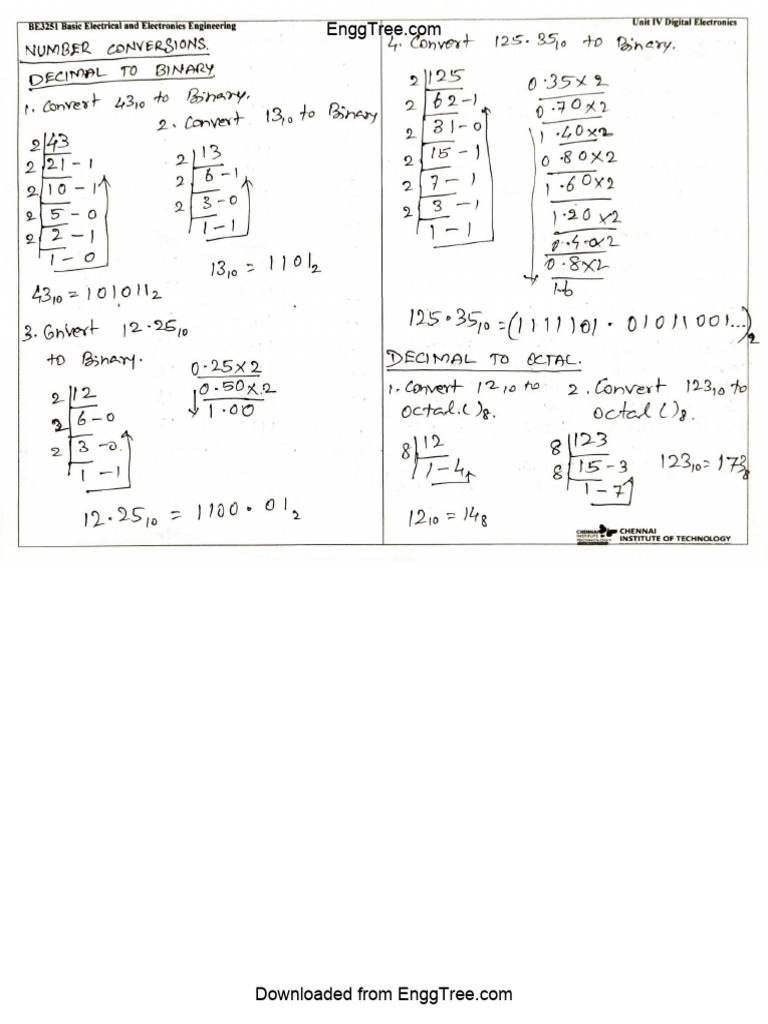 BE3251 Basic Electrical and Electronics Engineering
EnggTree.com
Unit IV Digital Electronics
NUMBER CONVERSIONS.
DECIMAL TO BINARY
1. Convert 43₁₀ to Binary.
2 | 43
2 | 21 - 1
2 | 10 - 1
2 | 5 - 0
2 | 2 - 1
1 - 0
43₁₀ = 101011₂
2. Convert 13₁₀ to Binary
2 | 13
2 | 6 - 1
2 | 3 - 0
1 - 1
13₁₀ = 1101₂
3. Convert 12.25₁₀
to Binary.
2 | 12
2 | 6 - 0
2 | 3 - 0.
1 - 1
0.25 x 2
0.50 x 2
1.00
12.25₁₀ = 1100.01₂
4. Convert 125.35₁₀ to Binary.
2 | 125
2 | 62 - 1
2 | 31 - 0
2 | 15 - 1
2 | 7 - 1
2 | 3 - 1
1 - 1
0.35 x 2
0.70 x 2
1.40 x 2
0.80 x 2
1.60 x 2
1.20 x 2
0.40 x 2
0.8 x 2
1.6
125.35₁₀ = (1111101.01011001...)₂
DECIMAL TO OCTAL.
1. Convert 12₁₀ to
octal.( )₈.
8 | 12
1 - 4
12₁₀ = 14₈
2. Convert 123₁₀ to
octal ( )₈.
8 | 123
8 | 15 - 3
1 - 7
123₁₀ = 173₈
CHENNAI
INSTITUTE OF TECHNOLOGY
Downloaded from EnggTree.com